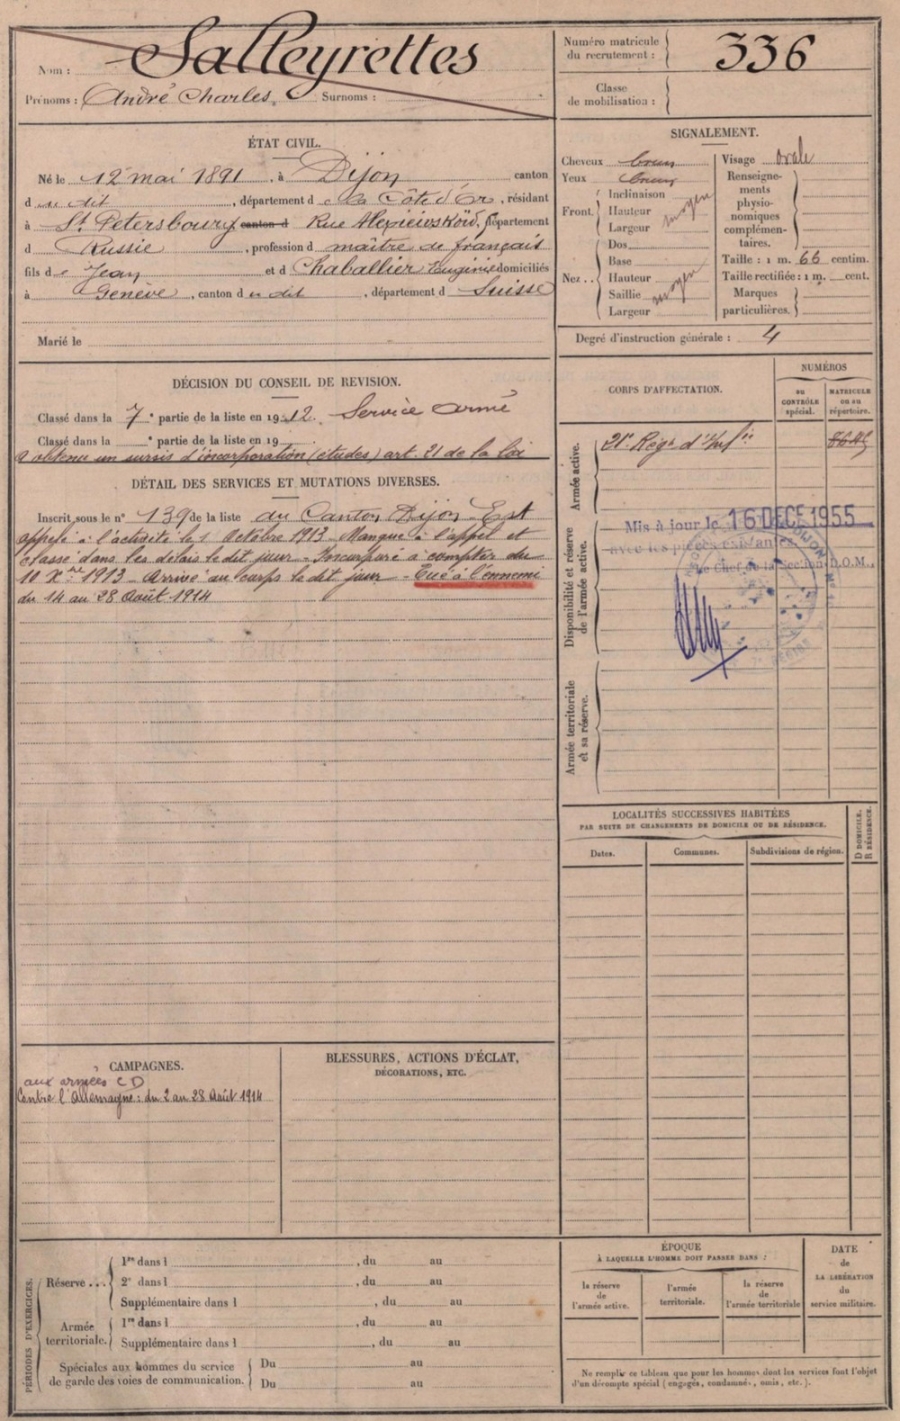 Nom : Salleyrettes
Prénoms : André Charles. Surnoms :
Numéro matricule du recrutement : 336
Classe de mobilisation :
ÉTAT CIVIL.
Né le 12 mai 1891, à Dijon canton
d u dit, département d e la Côte d'Or, résidant
à St Petersbourg canton d Rue Alexiéivskoïd, département
d Russie, profession d maître de français
fils d e Jean et d Chaballier Eugénie domiciliés
à Genève, canton d u dit, département d Suisse
Marié le
SIGNALEMENT.
Cheveux brun
Yeux bruns
Front. Inclinaison
Hauteur moyen
Largeur
Nez.. Dos
Base
Hauteur moyen
Saillie
Largeur
Visage ovale
Renseignements physionomiques complémentaires.
Taille : 1 m. 66 centim.
Taille rectifiée : 1 m. cent.
Marques particulières.
Degré d'instruction générale : 4
DÉCISION DU CONSEIL DE REVISION.
Classé dans la 7e partie de la liste en 1912. Service armé
Classé dans la e partie de la liste en 19
a obtenu un sursis d'incorporation (études) art. 21 de la loi
DÉTAIL DES SERVICES ET MUTATIONS DIVERSES.
Inscrit sous le n° 139 de la liste du Canton Dijon Est
appelé à l'activité le 1 Octobre 1913. Manque à l'appel et
classé dans les délais le dit jour - Incorporé à compter du
10 Xbre 1913 - Arrivé au corps le dit jour - Tué à l'ennemi
du 14 au 28 Août 1914
CORPS D'AFFECTATION.
NUMÉROS
au CONTRÔLE spécial.
MATRICULE ou au répertoire.
Armée active.
21e Régt d'Infie
Disponibilité et réserve de l'armée active.
Mis à jour le 16 DECE 1955
avec les pièces existantes
Le Chef de la Section D.O.M.,
Armée territoriale et sa réserve.
LOCALITÉS SUCCESSIVES HABITÉES
PAR SUITE DE CHANGEMENTS DE DOMICILE OU DE RÉSIDENCE.
Dates.
Communes.
Subdivisions de région.
D DOMICILE.
R RÉSIDENCE.
CAMPAGNES.
aux armées CD
Contre l'Allemagne : du 2 au 28 Août 1914
BLESSURES, ACTIONS D'ÉCLAT,
DÉCORATIONS, ETC.
PÉRIODES D'EXERCICES.
Réserve ... 1re dans l , du au
2e dans l , du au
Supplémentaire dans l , du au
Armée territoriale. 1re dans l , du au
Supplémentaire dans l , du au
Spéciales aux hommes du service de garde des voies de communication. Du au
Du au
ÉPOQUE
À LAQUELLE L'HOMME DOIT PASSER DANS :
la réserve de l'armée active.
l'armée territoriale.
la réserve de l'armée territoriale
DATE de LA LIBÉRATION du service militaire.
Ne remplir ce tableau que pour les hommes dont les services font l'objet
d'un décompte spécial (engagés, condamnés, omis, etc.).